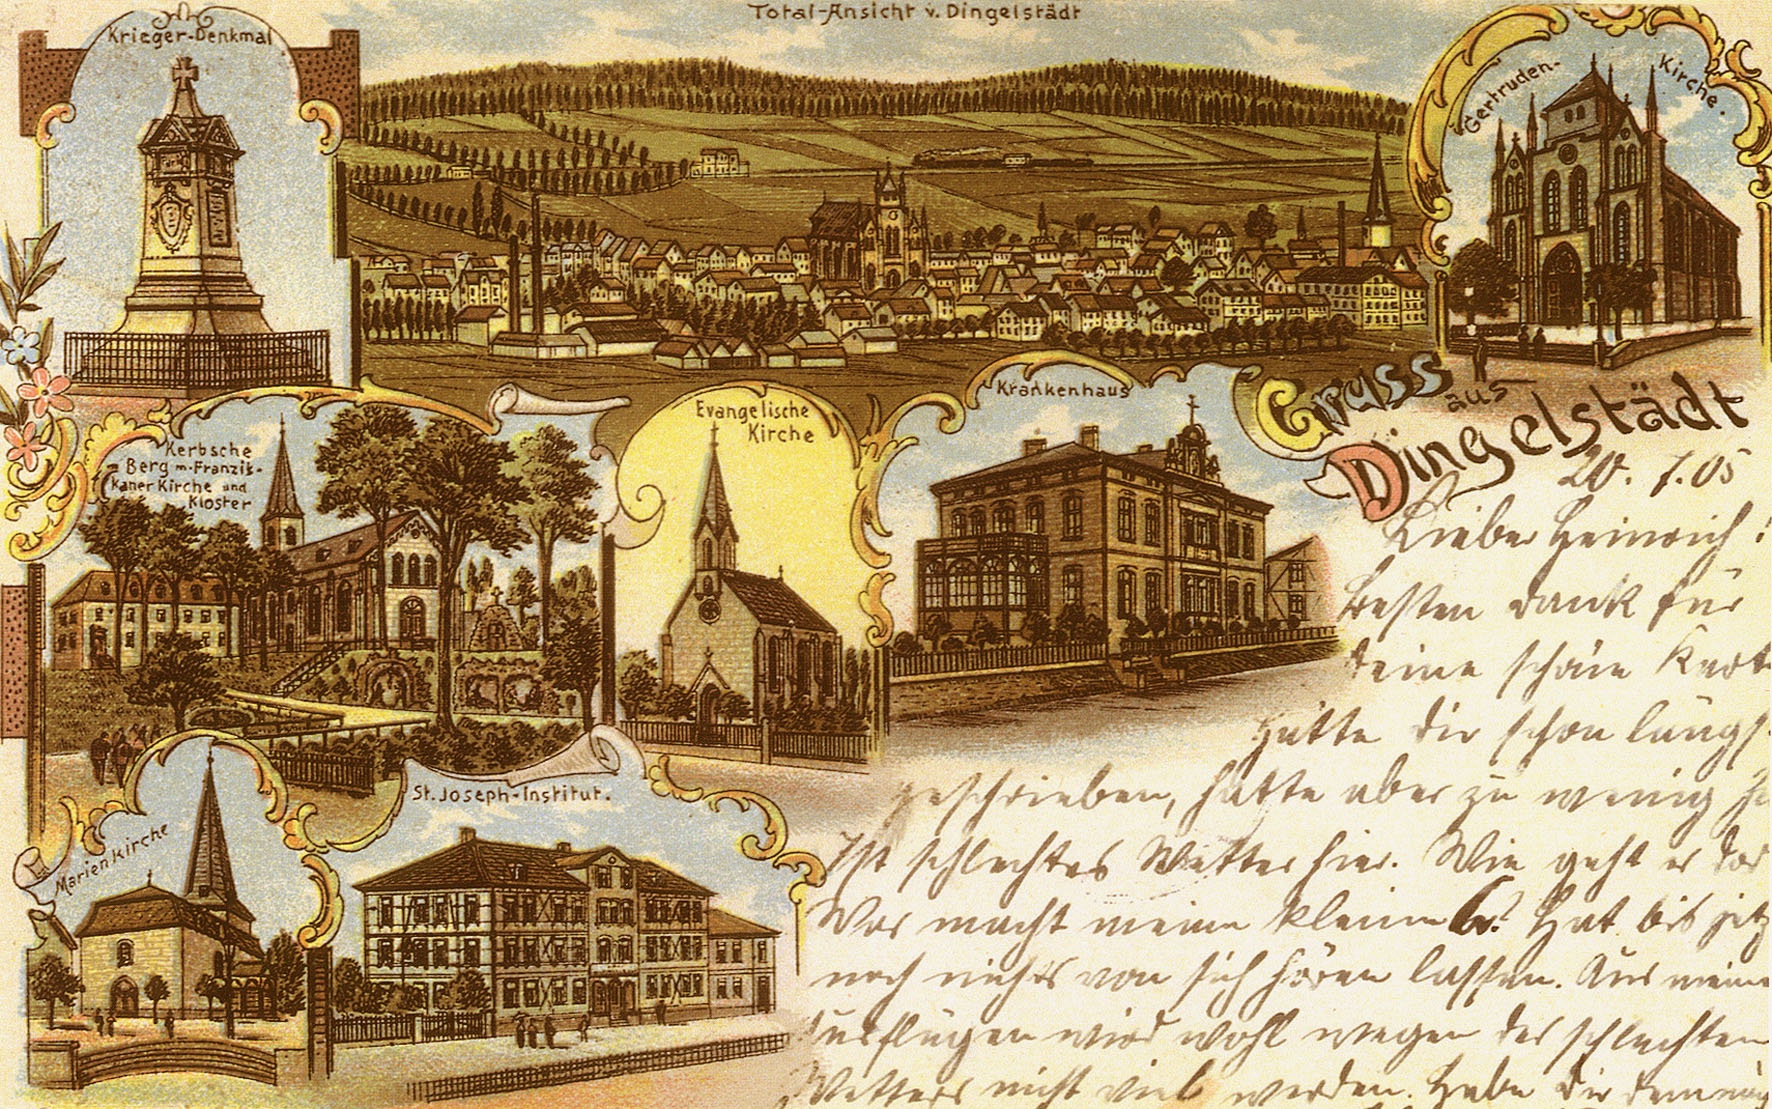 Total-Ansicht v. Dingelstädt
Krieger-Denkmal
Gertruden-
Kirche.
Gruss
aus
Dingelstädt
Krankenhaus
Evangelische
Kirche
Kerbsche
Berg m. Franzis-
kaner Kirche und
Kloster
St. Joseph-Institut.
Marienkirche
20. 7. 05
Lieber Heinrich!
Besten Dank für
deine schöne Karte
Hätte dir schon längs
geschrieben, hatte aber zu wenig
Ist schlechtes Wetter hier. Wie geht es
Was macht meine kleine G.? Hat bis jetz
noch nichts von sich hören lassen. Aus meine
Ausflügen wird wohl wegen des schlechten
Wetters nicht viel werden. Habe dir